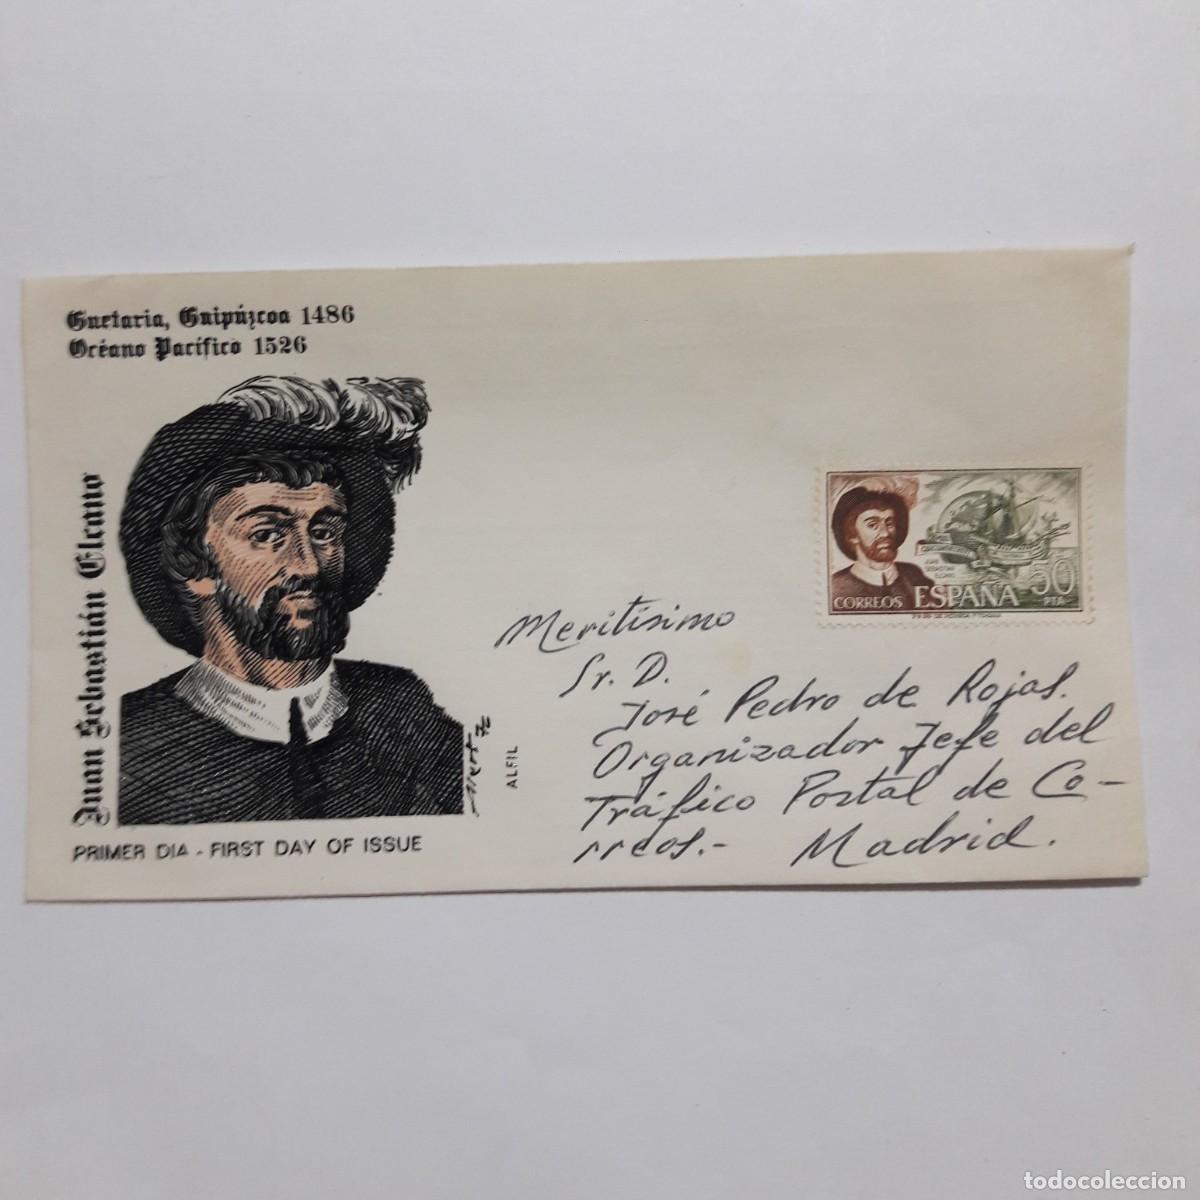 Guetaria, Guipúzcoa 1486
Océano Pacífico 1526
Juan Sebastián Elcano
ALFIL
PRIMER DIA - FIRST DAY OF ISSUE
JUAN
SEBASTIAN
ELCANO
50
PTA
CORREOS ESPAÑA
Meritísimo
Sr. D.
José Pedro de Rojas.
Organizador Jefe del
Tráfico Postal de Co-
rreos.- Madrid.
todocoleccion